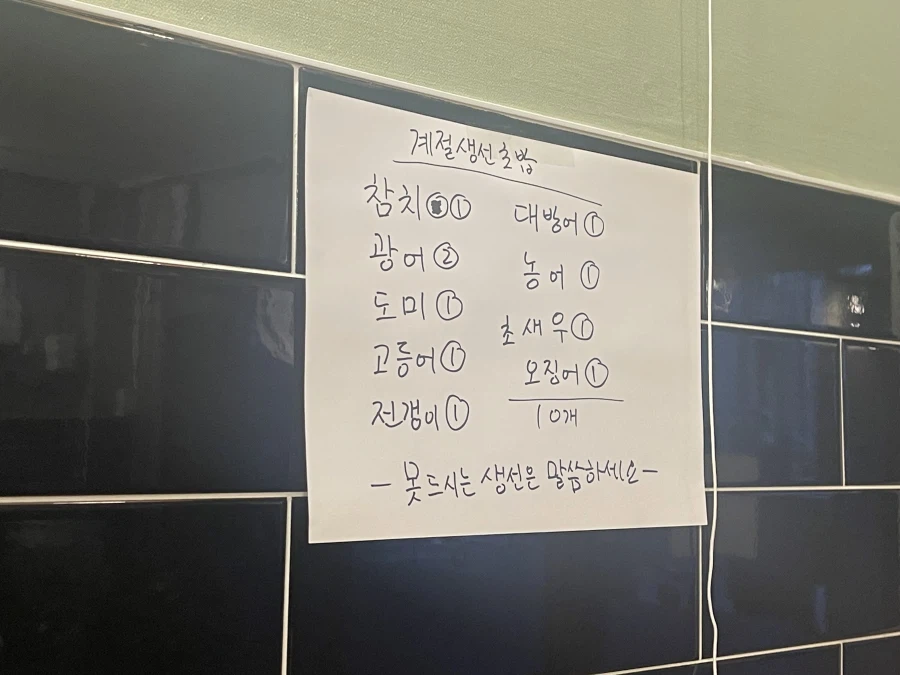 계절생선초밥
참치 ①
광어 ②
도미 ①
고등어 ①
전갱이 ①
대방어 ①
농어 ①
초새우 ①
오징어 ①
10개
- 못드시는 생선은 말씀하세요 -